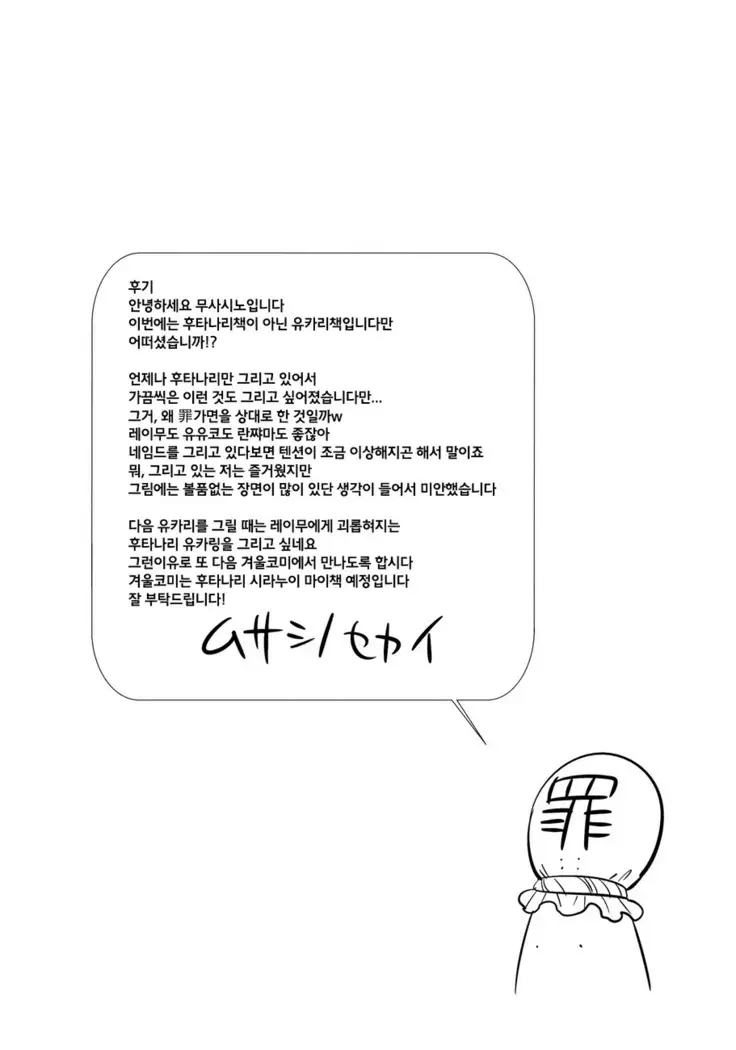 후기
안녕하세요 무사시노입니다
이번에는 후타나리책이 아닌 유카리책입니다만
어떠셨습니까!?
언제나 후타나리만 그리고 있어서
가끔씩은 이런 것도 그리고 싶어졌습니다만...
그거, 왜 罪가면을 상대로 한 것일까w
레이무도 유유코도 란쨔마도 좋잖아
네임드를 그리고 있다보면 텐션이 조금 이상해지곤 해서 말이죠
뭐, 그리고 있는 저는 즐거웠지만
그림에는 볼품없는 장면이 많이 있단 생각이 들어서 미안했습니다
다음 유카리를 그릴 때는 레이무에게 괴롭혀지는
후타나리 유카링을 그리고 싶네요
그런이유로 또 다음 겨울코미에서 만나도록 합시다
겨울코미는 후타나리 시라누이 마이책 예정입니다
잘 부탁드립니다!
ムサシノセカイ
罪